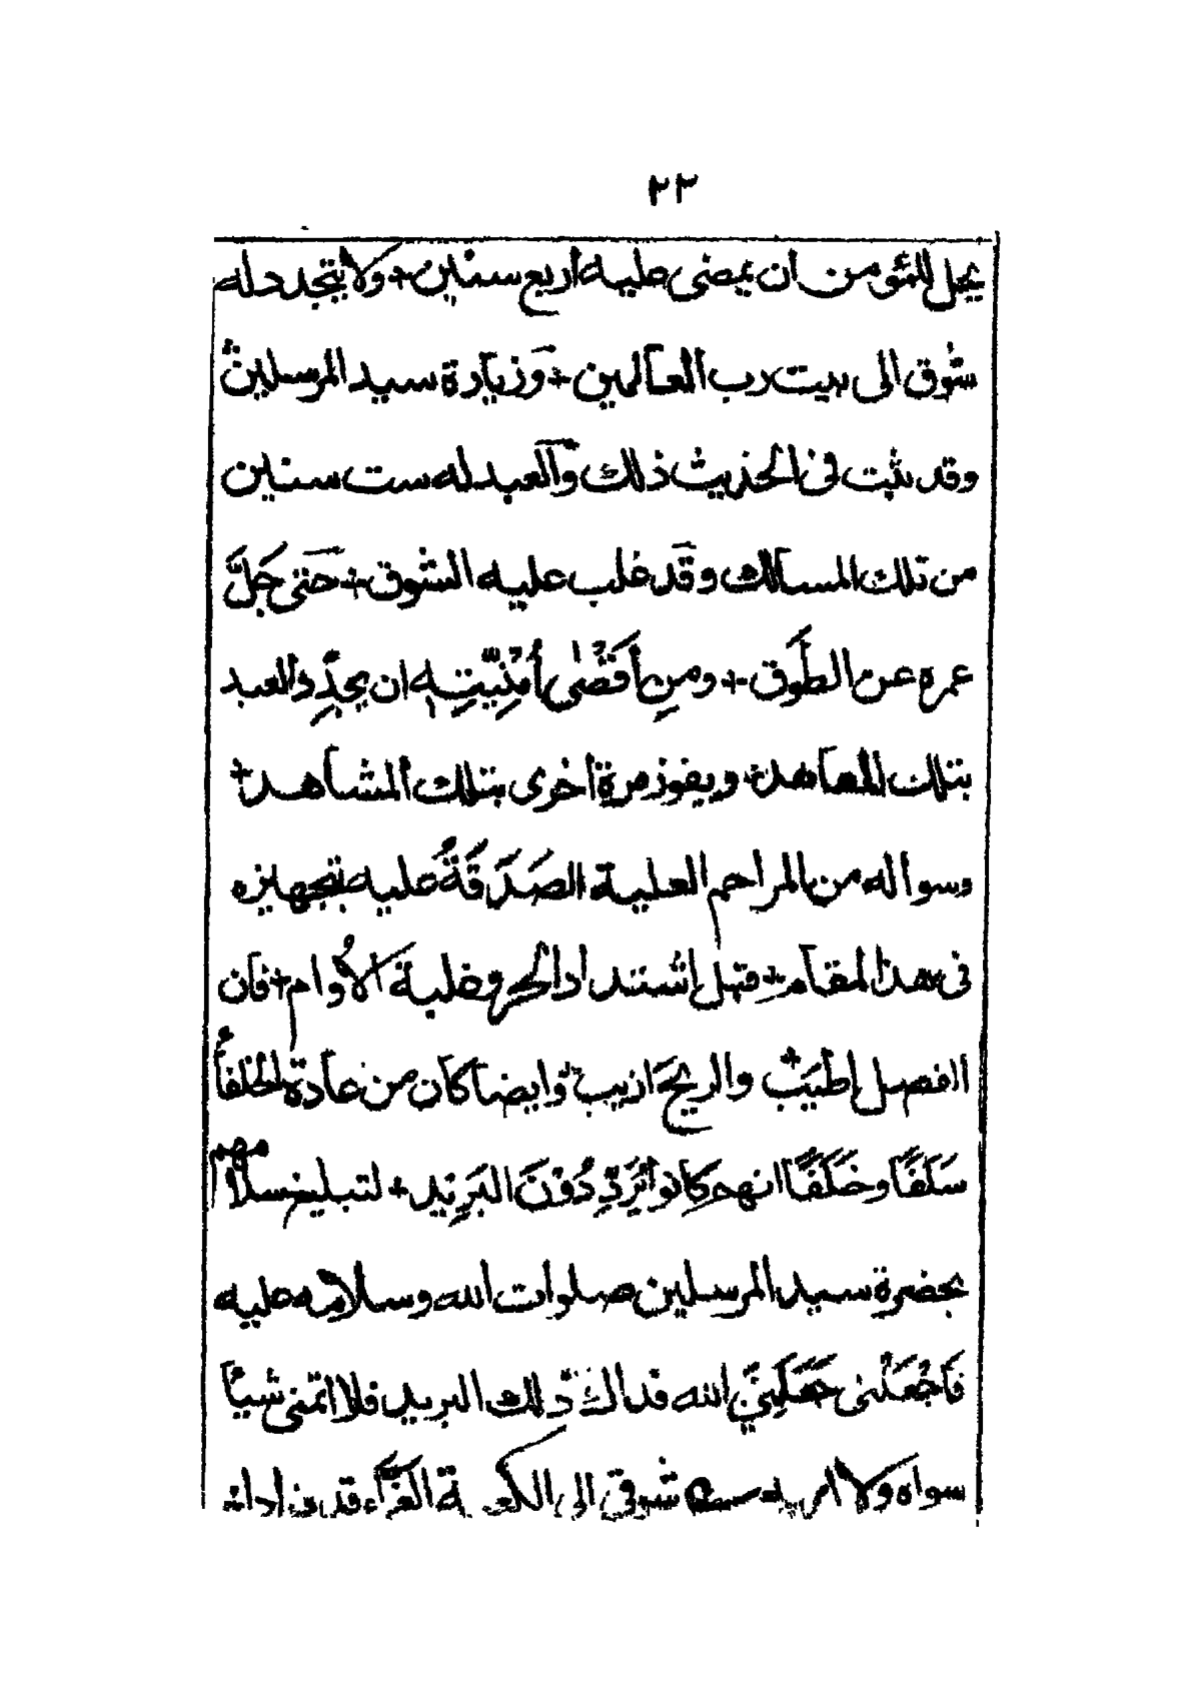 ٢٣
يحل للمؤمن ان يمضى عليه اربع سنين + ولا يتجدد له
شوق الى بيت رب العالمين + وزيارة سيد المرسلين
وقد ثبت فى الحديث ذلك والعبد له ست سنين
من تلك المسالك وقد غلب عليه الشوق + حتى جَلَّ
عمره عن الطوق + ومن أَقْصٰى أُمْنِيَّتِهٖ ان يجدِّد العبد
بتلك المعاهد + ويفوز مرة أخرى بتلك المشاهد +
وسواله من المراحم العلية الصَدَقَةُ عليه بتجهيزه
فى هذا المقام + قبل اشتداد الحر وغلبة الأوام + فان
الفصل اطيَب والريحَ ازيب وايضا كان من عادة الخلفاً
سَلَفًا وخَلَفًا انهم كانوا يُرَدِّدُوْنَ البَرِيْد + لتبليغ سلامهم
بحضرة سيد المرسلين صلوات الله وسلامه عليه
فَاجْعَلْنى جَعَلَنِيَ الله فداك ذلك البريد فلا اتمنى شيأ
سواه ولا اريد شوقى الى الكعبة الغَرَّاء قد زادا